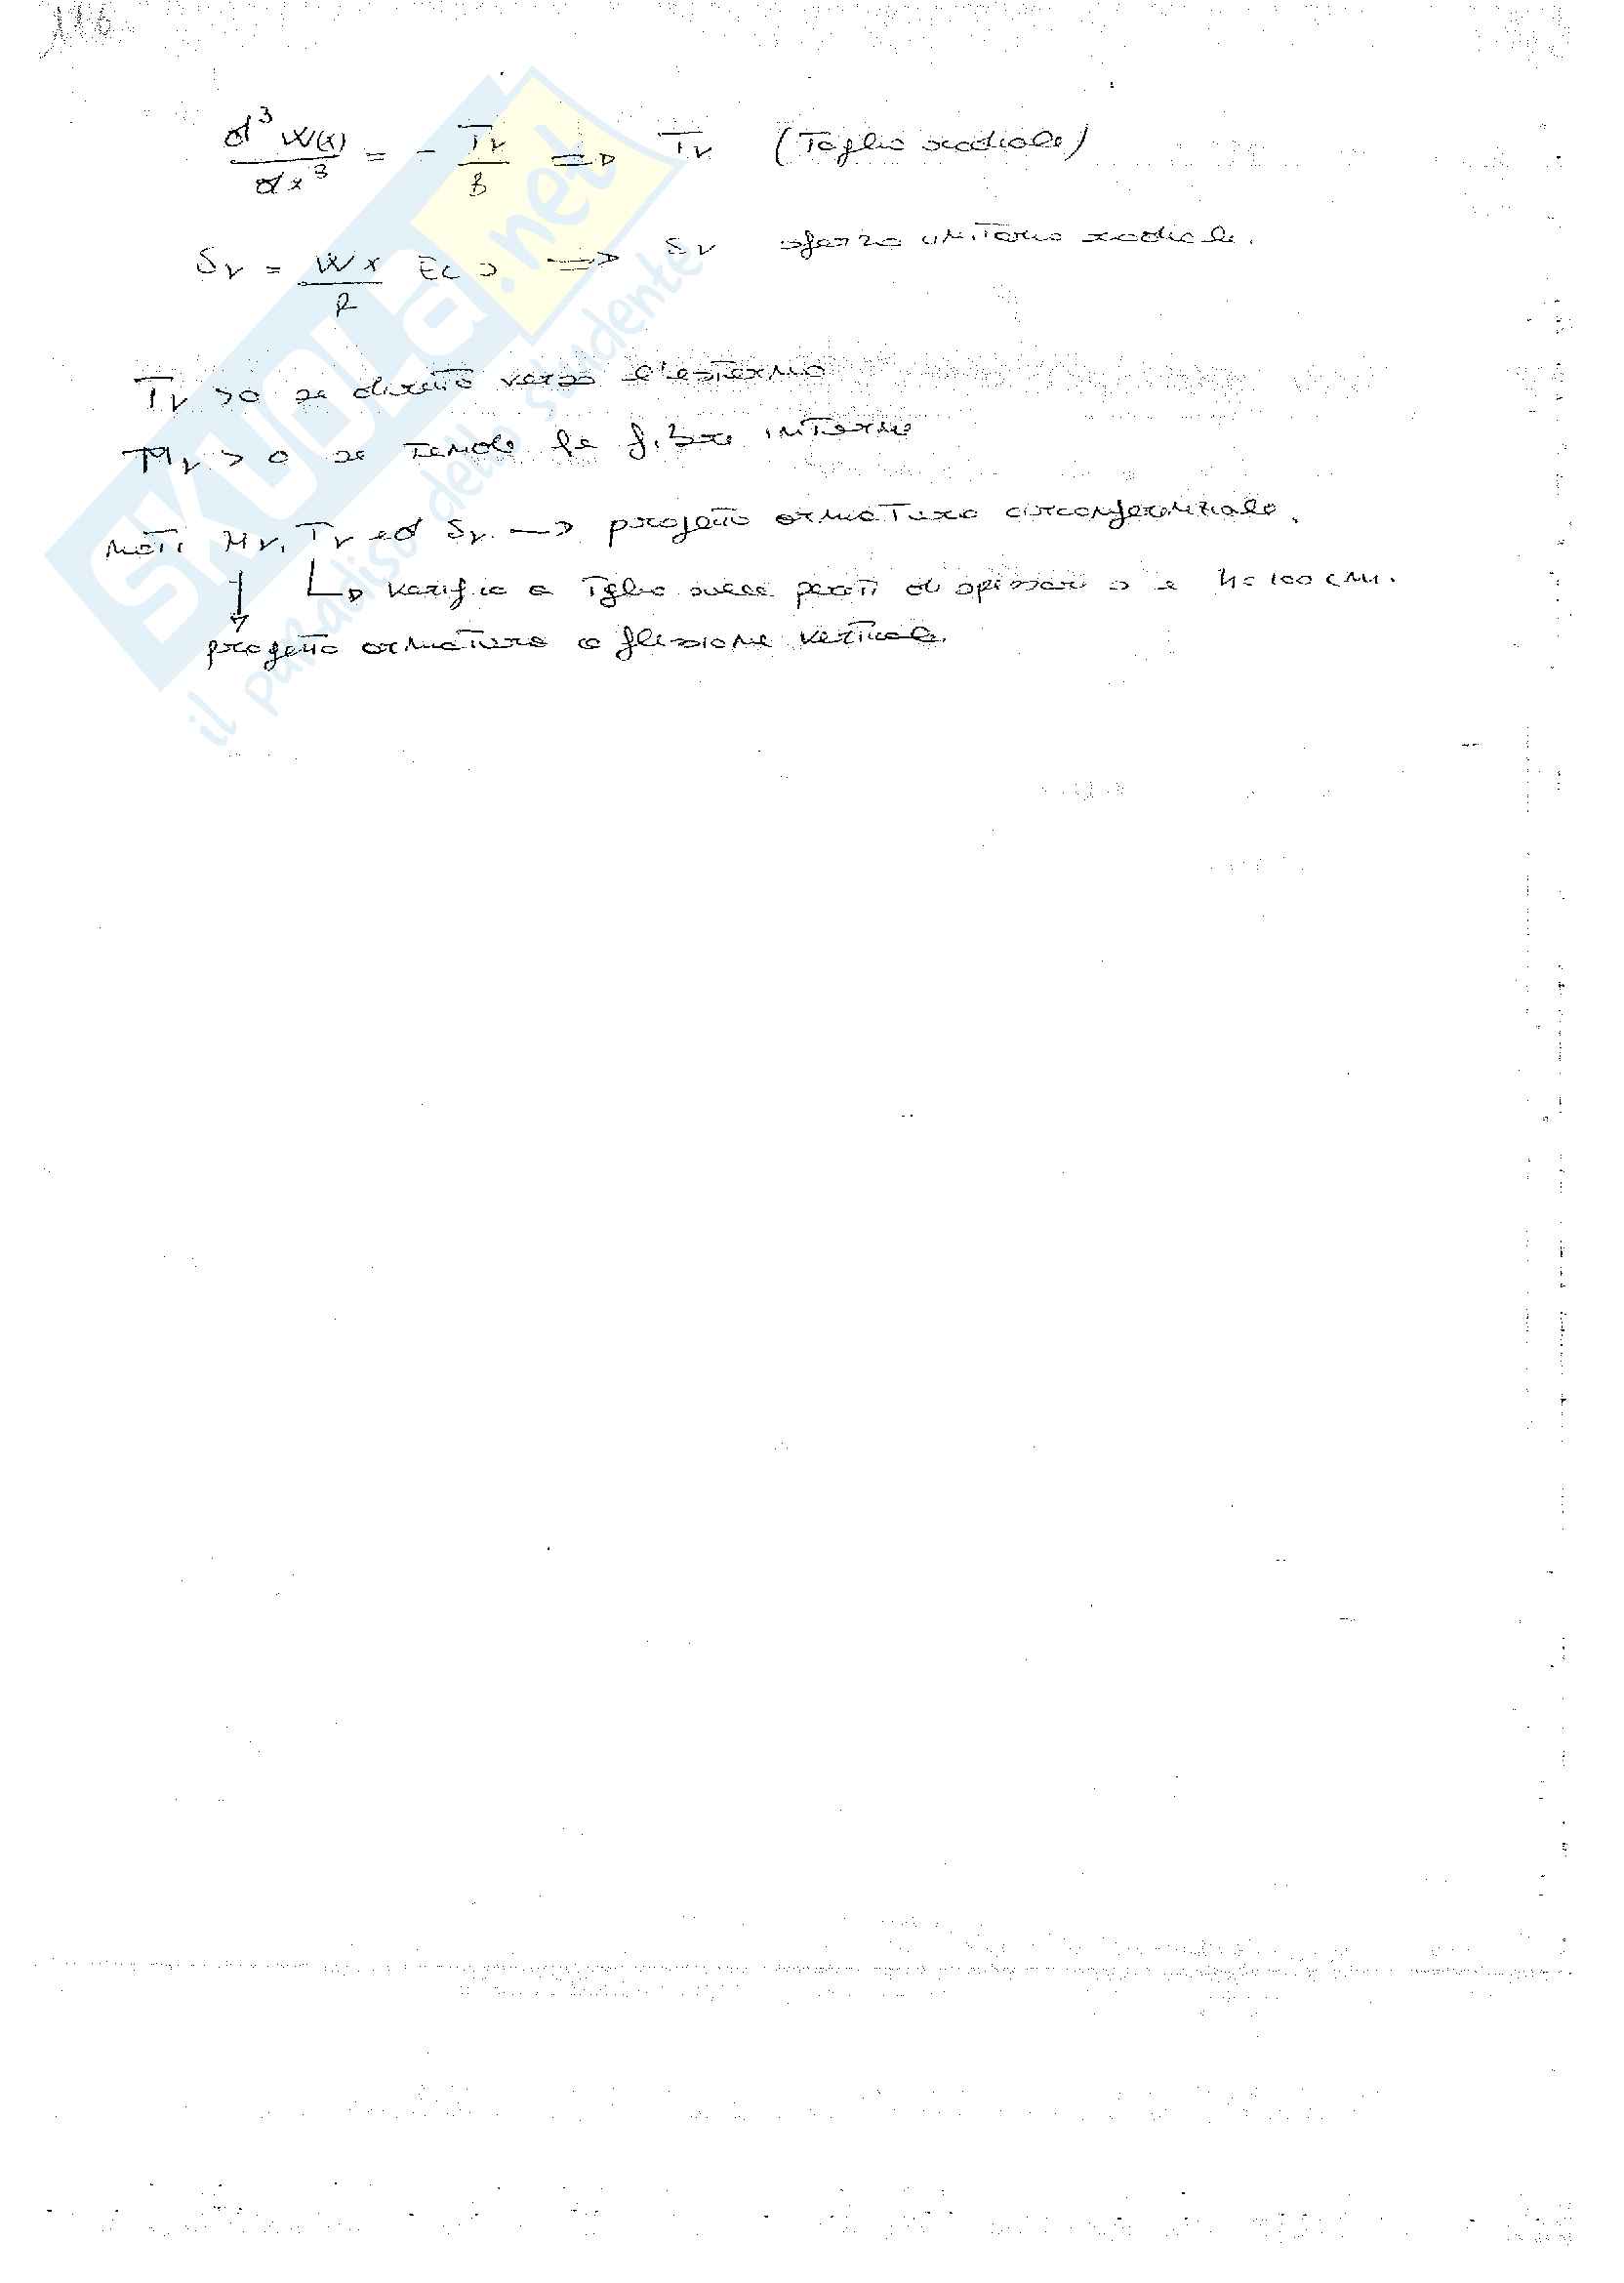 116
d³ W(x) / dx³ = - Tv / B ⇒ Tv (Taglio radiale)
Sv = Wx / R Ec s ⇒ Sv sforzo unitario radiale.
Tv > 0 se diretto verso l'esterno
Mv > 0 se tende le fibre interne
Noti Mv, Tv ed Sv → progetto armatura circonferenziale.
↓ ↳ verific a Tglio sulle pareti di spessori s e H = 100 cm.
progetto armatura a flessione verticale.
SKUOLA.net
il paradiso dello studente